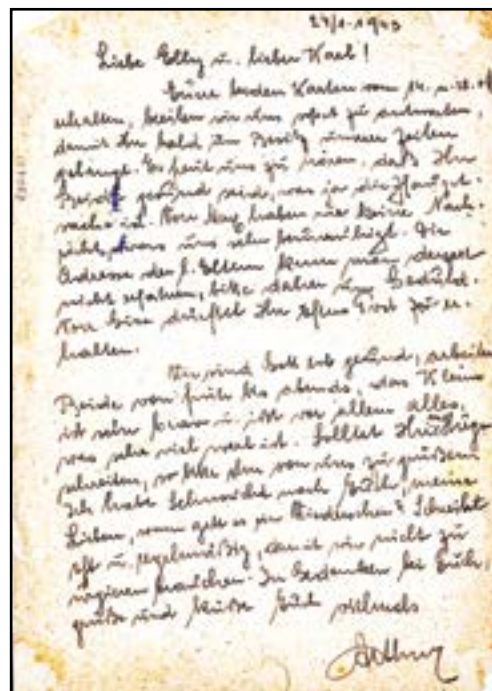 24/1-1943
Liebe Elly u. lieber Karl!
Eure beiden Karten vom 14. u. 
erhalten, beeilen wir uns sofort zu antworten,
damit Ihr bald in Besitz unserer Zeilen
gelangt. Es freut uns zu hören, daß Ihr
Beide gesund seid, was ja die Haupt-
sache ist. Von haben wir keine Nach-
richt, was uns sehr beunruhigt. Die
Adresse der l. Eltern kann man derzeit
nicht erfahren, bitte daher um Geduld.
Von dürftet Ihr öfters Post zu er-
halten.
Wir sind Gott lob gesund, arbeiten
Beide von früh bis abends, das Kleine
ist sehr brav u. ißt vor allem alles,
was sehr viel wert ist. Solltet Ihr
schreiben, so bitte ihn von uns zu grüßen
Ich habe Sehnsucht nach Euch, meine
Lieben, wann geht es in ? Schreibt
oft u. regelmäßig, damit wir nicht zu
brauchen. In Gedanken bei Euch,
grüße und küße Euch vielmals
Arthur